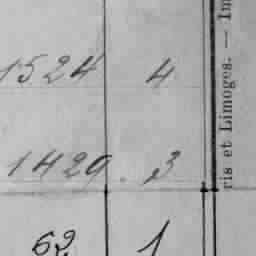 1524 4
1429. 3
62 1
ris et Limoges. — Im